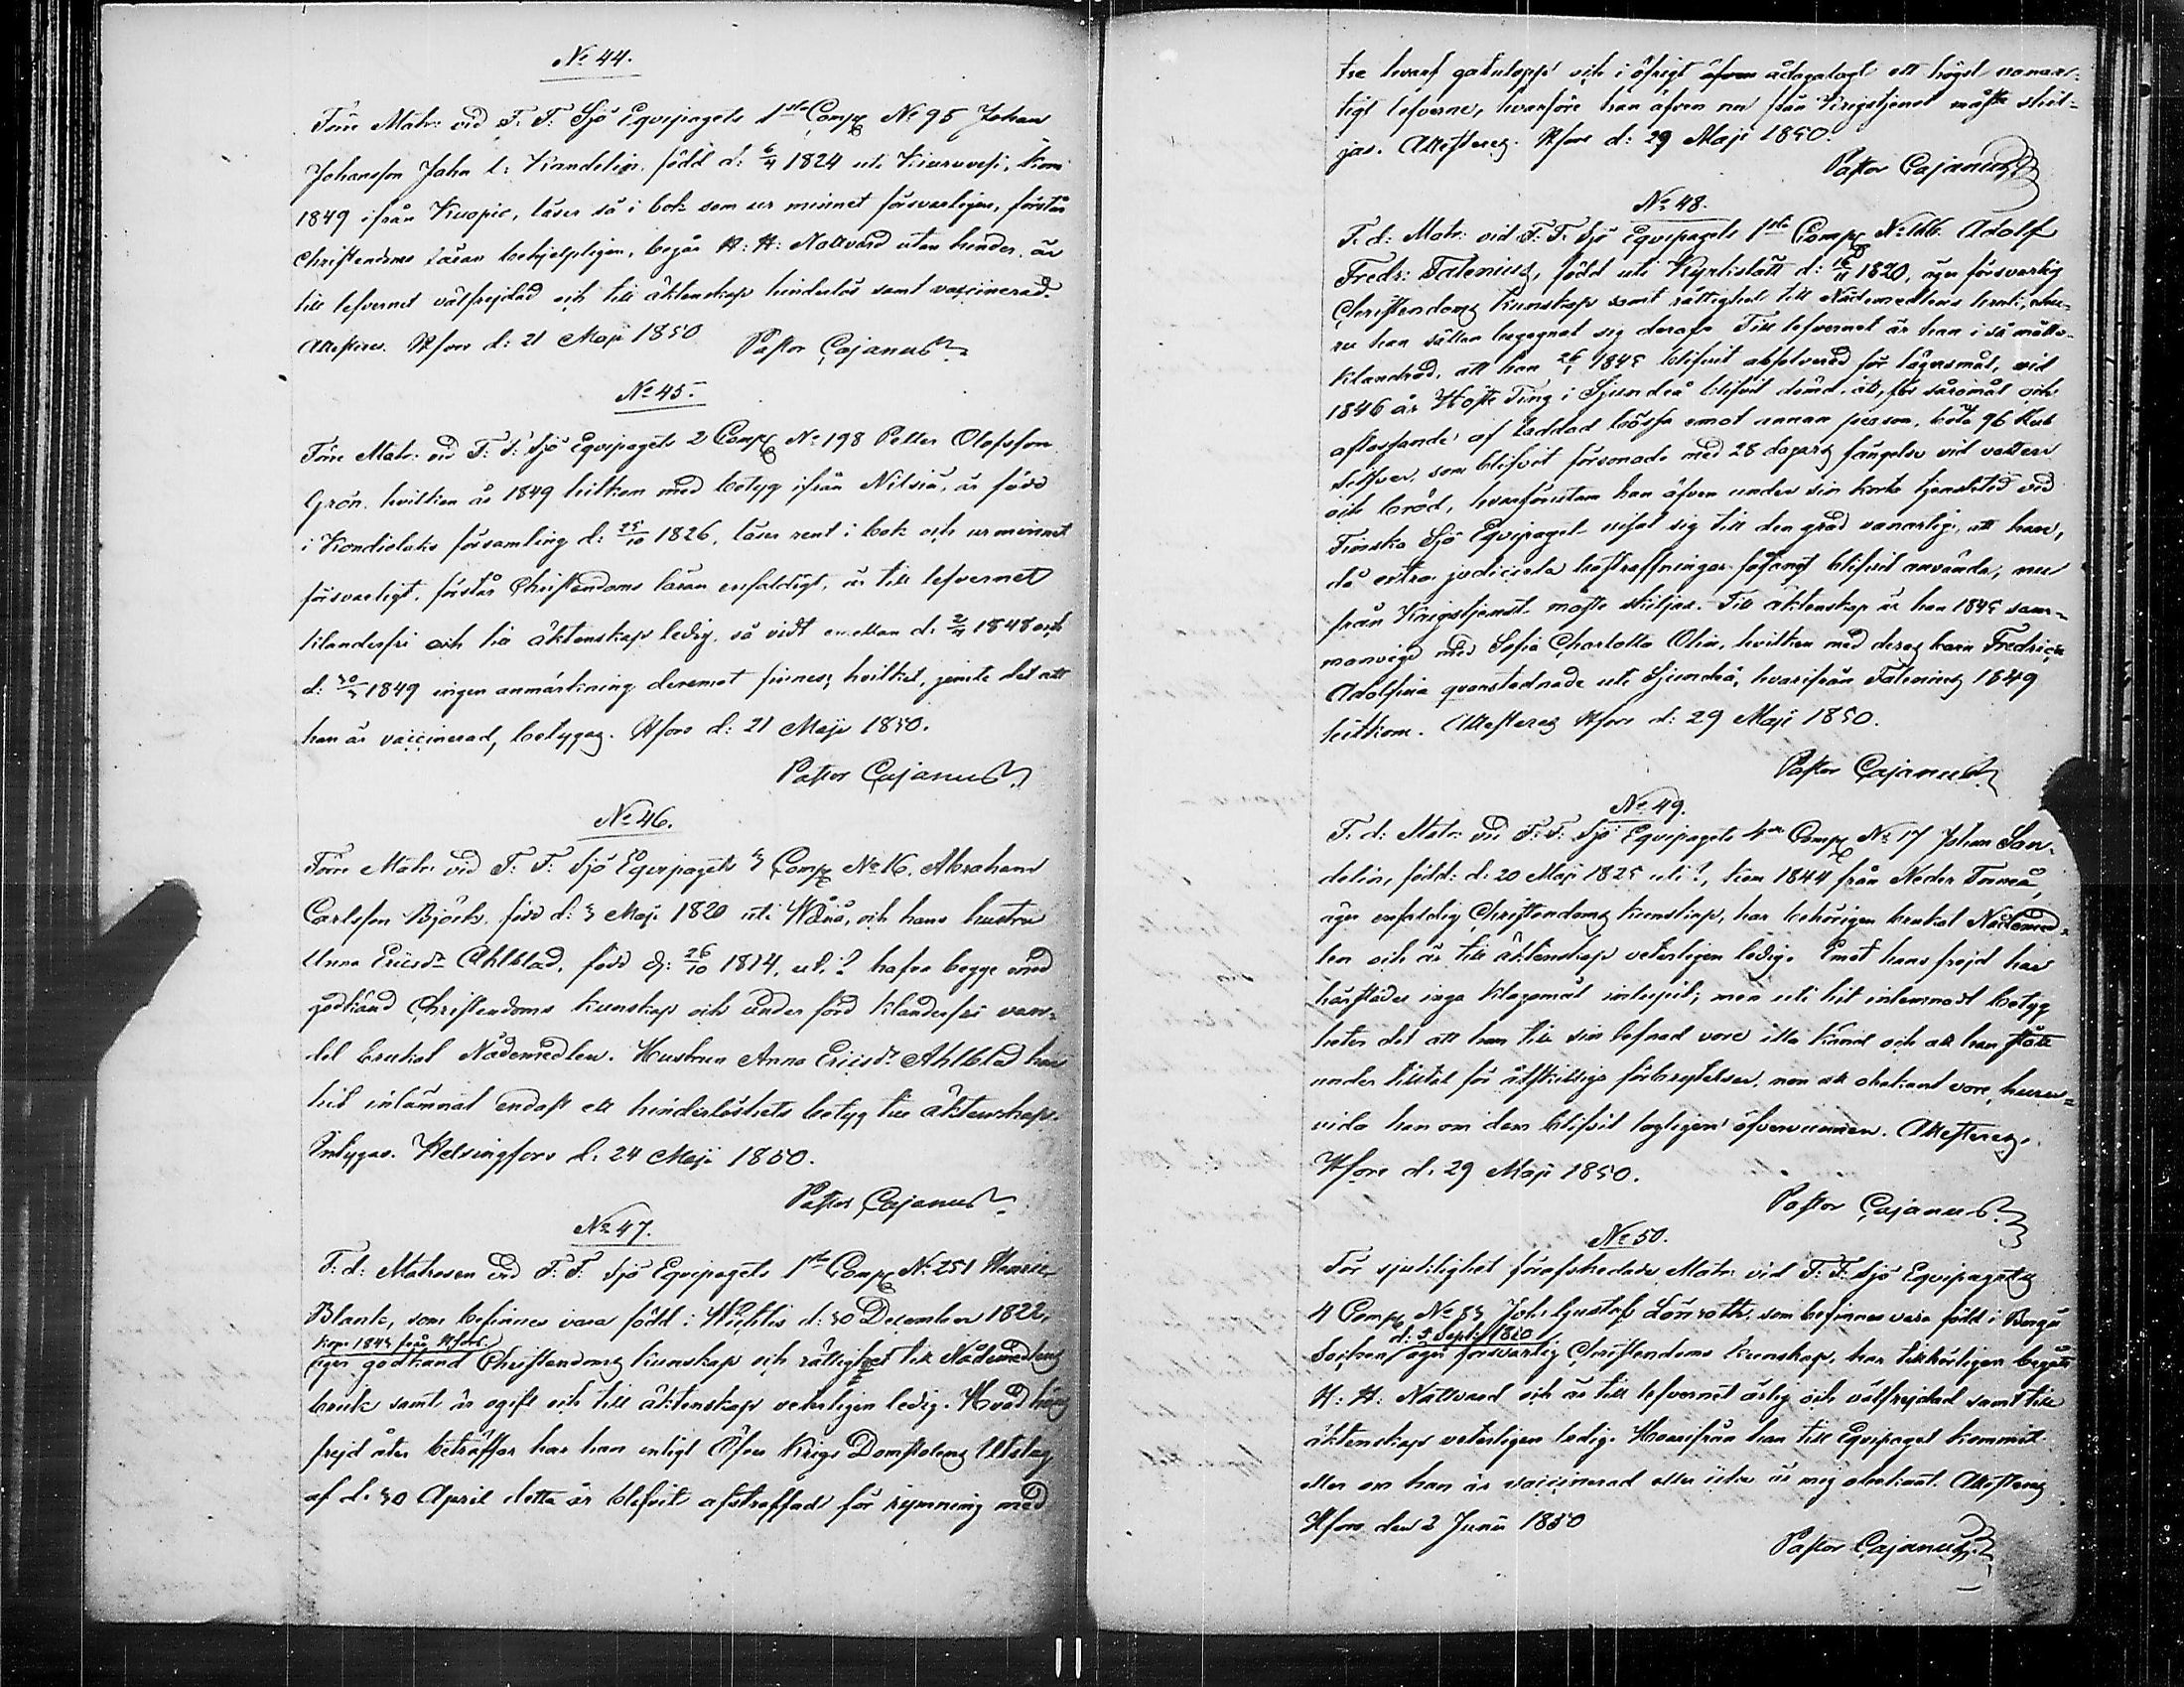 No 44.
Förre Matr: vid F. F. Sjö Eqvipagets 1sta Comp No 95 Johan
Johansson Jahn l: Kandelin född d: 6/4 1824 uti Kiuruvesi, kom
1849 ifrån Kuopio, läser så i bok som ur minnet försvarligen, förstår
Christendoms läran behjelpligen, begår H: H: Nattvard utan hinder, är
till lefvernet välfrejdad och till äktenskap hinderlös samt vaccinerad.
Attesteras. Hfors d: 21 Maji 1850 Pastor Cajanus
No 45.
Förre Matr: vid F: F: Sjö Eqvipagets 2 Comp No 198 Petter Olofsson
Grön, hvilken år 1849 hitkom med betyg ifrån Nilsiä, är född
i Kondiolaks församling d: 25/10 1826, läser rent i bok och ur minnet
försvarligt, förstår Christendoms läran enfaldigt, är till lefvernet
klanderfri och till äktenskap ledig, så vidt emellan d: 2/4 1848 och
d: 30/3 1849 ingen anmärkning deremot finnes, hvilket, jemte det att
han är vaccinerad, betygas. Hfors d: 21 Maji 1850.
Pastor Cajanus
No 46.
Förre Matr: vid F: F: Sjö Eqvipagets 3 Comp No 16, Abraham
Carlsson Björk, född d: 3 Maji 1820 uti Wånå, och hans hustru
Anna Ericsdr Ahlblad, född d: 26/10 1814, uti ? hafva begge med
godkänd Christendoms kunskap och under förd klanderfri van-
del brukat Nådemedlen. Hustrun Anna Ericsdr Ahlblad har
hit inlämnat endast ett hinderlöshets betyg till äktenskap.
Intygas. Helsingfors d: 24 Maji 1850.
Pastor Cajanus
No 47.
F: d: Matrosen vid F: F: Sjö Eqvipagets 1sta Comp No 251 Henric
Blank, som befinnes vara född i Wichtis d: 30 December 1822,
kom 1843 från Hfors
äger godkänd Christendoms kunskap och rättighet till Nådemedlens
bruk samt är ogift och till äktenskap veterligen ledig. Hvad hans
frejd åter beträffar har han enligt Öfver Krigs Domstolens Utslag
af d: 30 April detta år blifvit afstraffad för rymning med
tre hvarf gatulopp och i öfrigt äfven ådagalagt ett högst vanar-
tigt lefverne, hvarföre han äfven nu från Krigstjenst måste skil-
jas. Attesteras. Hfors d: 29 Maji 1850.
Pastor Cajanus
No 48.
F. d: Matr: vid F: F: Sjö Eqvipagets 1sta Comp No 186 Adolf
Fredr: Talenius, född uti Kyrkslätt d: 16/11 1820, äger försvarlig
Christendoms kunskap samt rättighet till Nådemedlens bruk, ehu-
ru han sällan begagnat sig deraf. Till lefvernet är han i så måtto
klandrad, att han 26/1 1845 blifvit absolverad för lägersmål, vid
1846 års Höste Ting i Sjundeå blifvit dömd, att, för såramål och
aflossande af laddad bössa emot annan person, böta 96 Rub
silfver, som blifvit försonade med 28 dagars fängelse vid vatten
och bröd, hvarförutan han äfven under sin korta tjenstetid vid
Finska Sjö Eqvipaget visat sig till den grad vanartig, att han,
då extra judiciela bestraffningar fåfängt blifvit använda, nu
från Krigstjenst måste skiljas. Till äktenskap är han 1845 sam-
manvigd med Sofia Charlotta Olin, hvilken med deras barn Fredrica
Adolfina qvarstadnade uti Sjundeå, hvarifrån Talenius 1849
hitkom. Attesteras Hfors d: 29 Maji 1850.
Pastor Cajanus
No 49.
F. d: Matr: vid F: F: Sjö Eqvipagets 4de Comp No 17 Johan San-
delin, född: d: 20 Maji 1825 uti ?, kom 1844 från Neder Torneå,
äger enfaldig Christendoms kunskap, har behörigen brukat Nådemed-
len och är till äktenskap veterligen ledig. Emot hans frejd har
härstädes inga klagomål inlupit; men uti hit inlemnadt betyg
heter det att han till sin lefnad vore illa känd och att han stått
under tilltal för åtskilliga förbrytelser, men att obekant vore, huru-
vida han om dem blifvit lagligen öfvervunnen. Attesteras.
Hfors d. 29 Maji 1850.
Pastor Cajanus
No 50.
För sjuklighet förafskedade Matr: vid F: F. Sjö Eqvipagets
4 Comp No 83 Joh: Gustaf Lönroth, som befinnes vara född i Borgå
d: 3 Sept: 1820
Socken äger försvarlig Christendoms kunskap, har tillhörligen begått
H: H: Nattvard och är till lefvernet ärlig och välfrejdad samt till
äktenskap veterligen ledig. Hvarifrån han till Eqvipaget kommit
eller om han är vaccinerad eller icke är mig obekant. Attesteras
Hfors den 2 Junii 1850
Pastor Cajanus